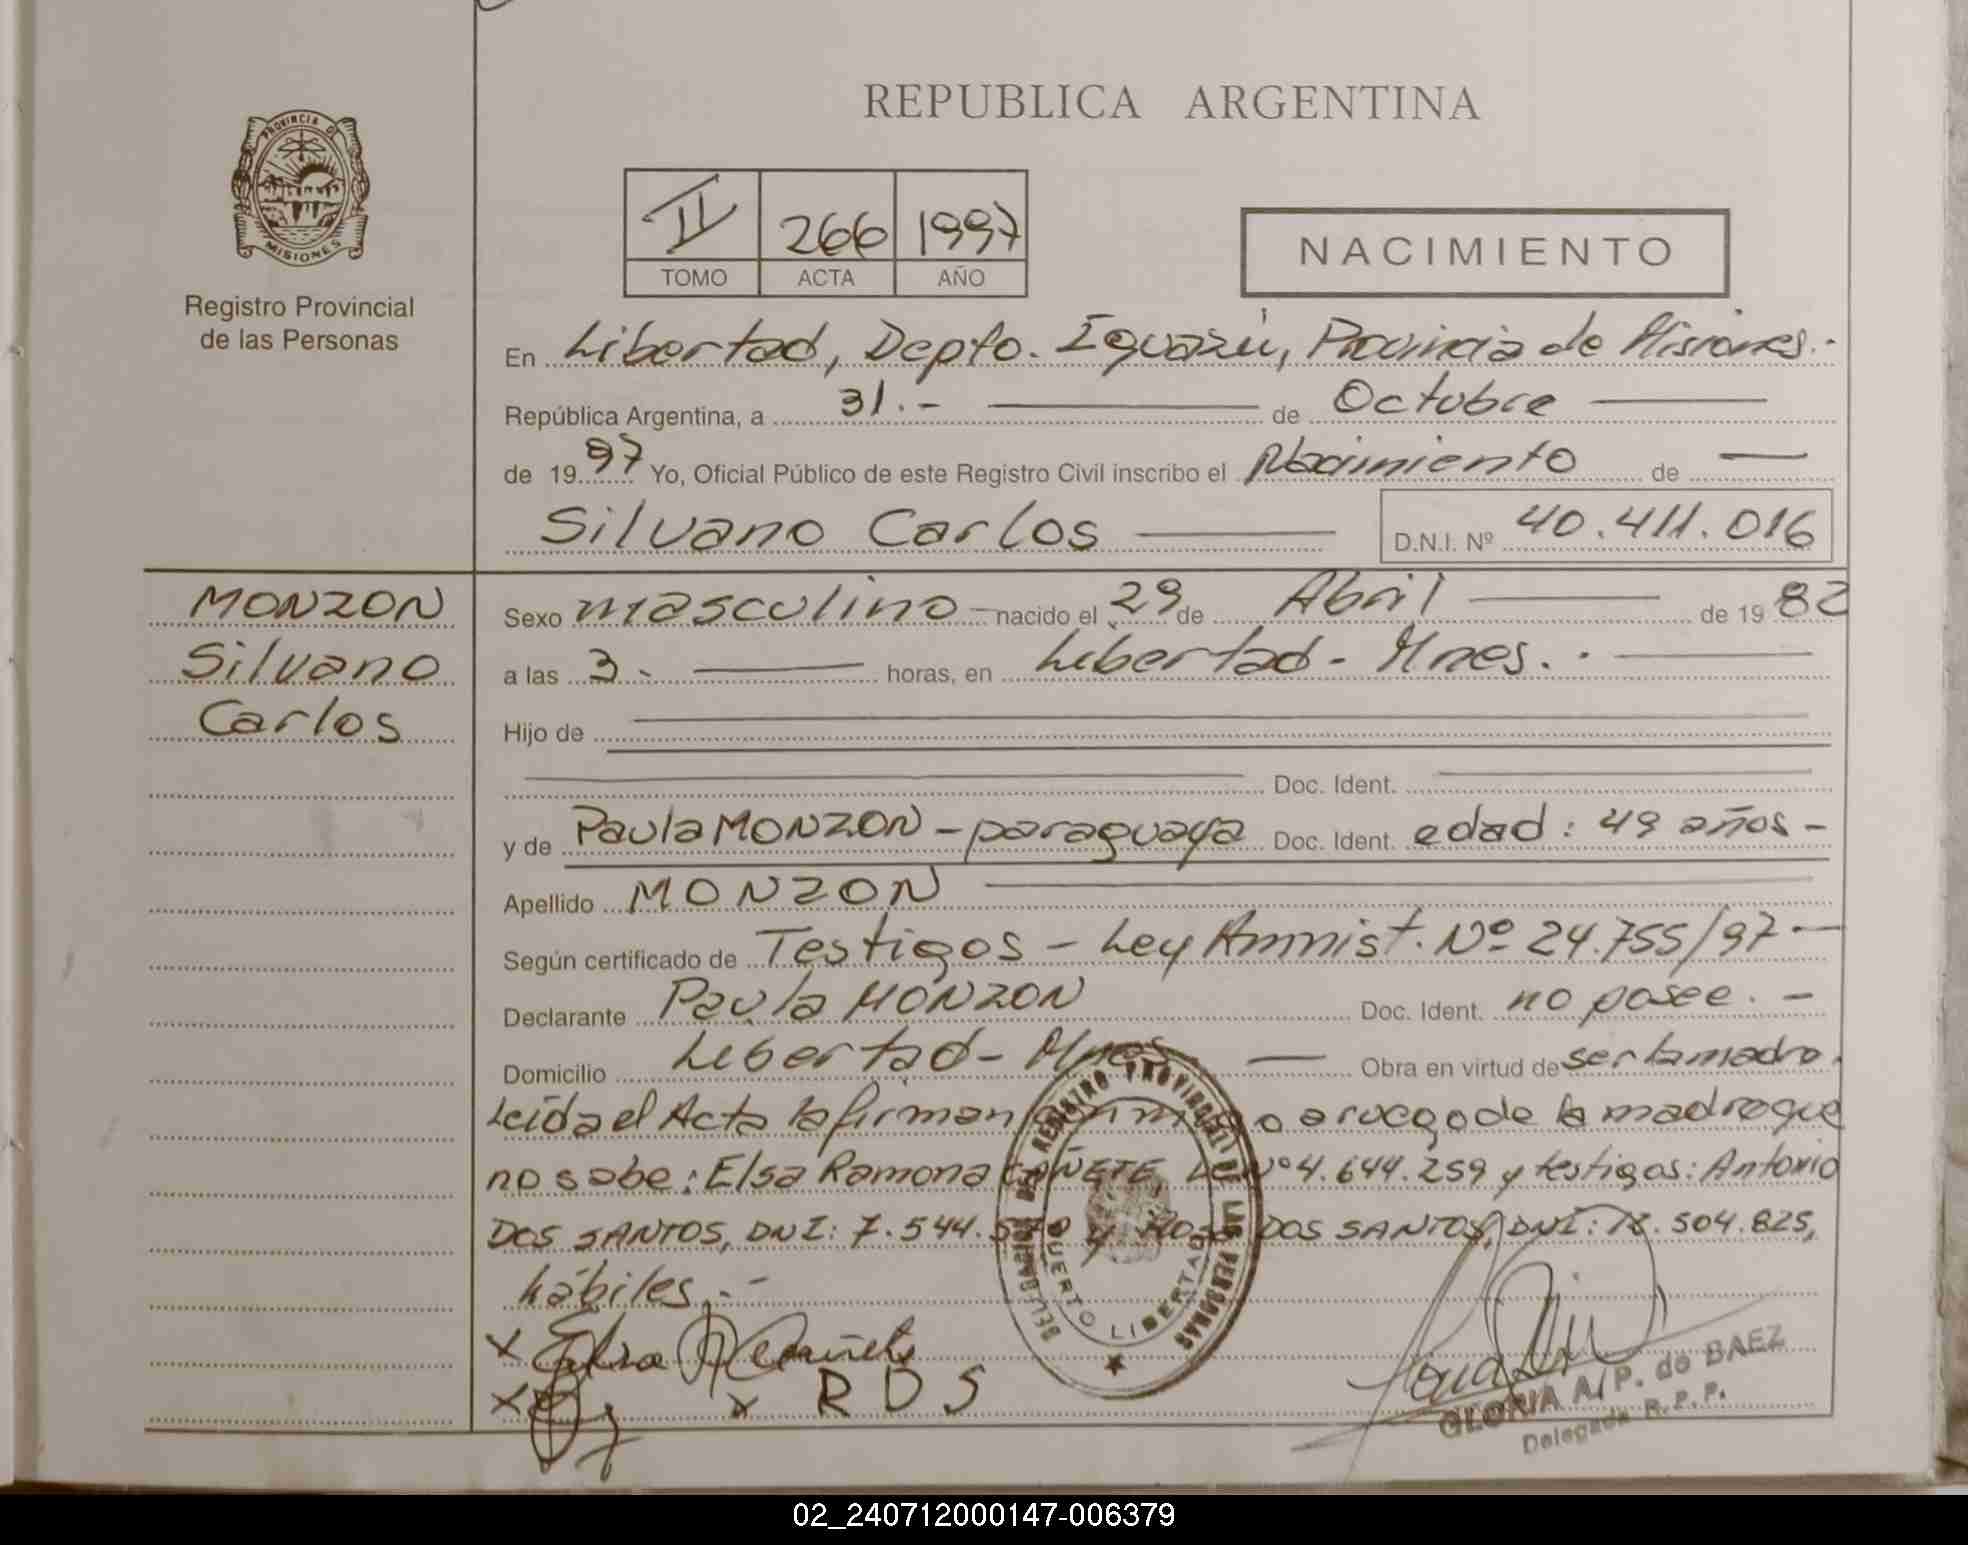 REPUBLICA ARGENTINA
PROVINCIA DE
MISIONES
Registro Provincial
de las Personas
II 266 1997
TOMO ACTA AÑO
NACIMIENTO
En Libertad, Depto. Iguazú, Provincia de Misiones.-
República Argentina, a 31.- de Octubre
de 1997 Yo, Oficial Público de este Registro Civil inscribo el Nacimiento de
Silvano Carlos D.N.I. Nº 40.411.016
MONZON
Silvano
Carlos
Sexo masculino nacido el 29 de Abril de 1982
a las 3.- horas, en Libertad - Mnes.-
Hijo de
Doc. Ident.
y de Paula MONZON - paraguaya Doc. Ident. edad: 49 años -
Apellido MONZON
Según certificado de Testigos - Ley Amnist. Nº 24.755/97 -
Declarante Paula MONZON Doc. Ident. no posee. -
Domicilio Libertad - Mnes Obra en virtud de ser la madre.
Leída el Acta la firman conmigo a ruego de la madre que
no sabe: Elsa Ramona CAÑETE, LC Nº 4.644.259 y testigos: Antonio
DOS SANTOS, DNI: 7.544. y Rosa DOS SANTOS, DNI: .504.825,
hábiles.-
DELEGACION DEL REGISTRO PROVINCIAL DE LAS PERSONAS
PUERTO LIBERTAD
x Elsa R Cañete
x x R D S
GLORIA A. P. de BAEZ
Delegada R. P. P.
02_240712000147-006379